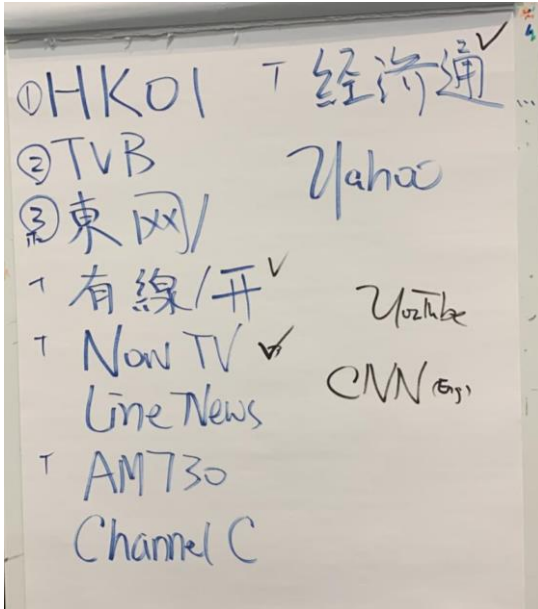 ①HK01
②TVB
③東网/
T 有線/开✓
T Now TV ✓
Line News
T AM730
Channel C
T 经济通✓
Yahoo
YouTube
CNN (Eng)